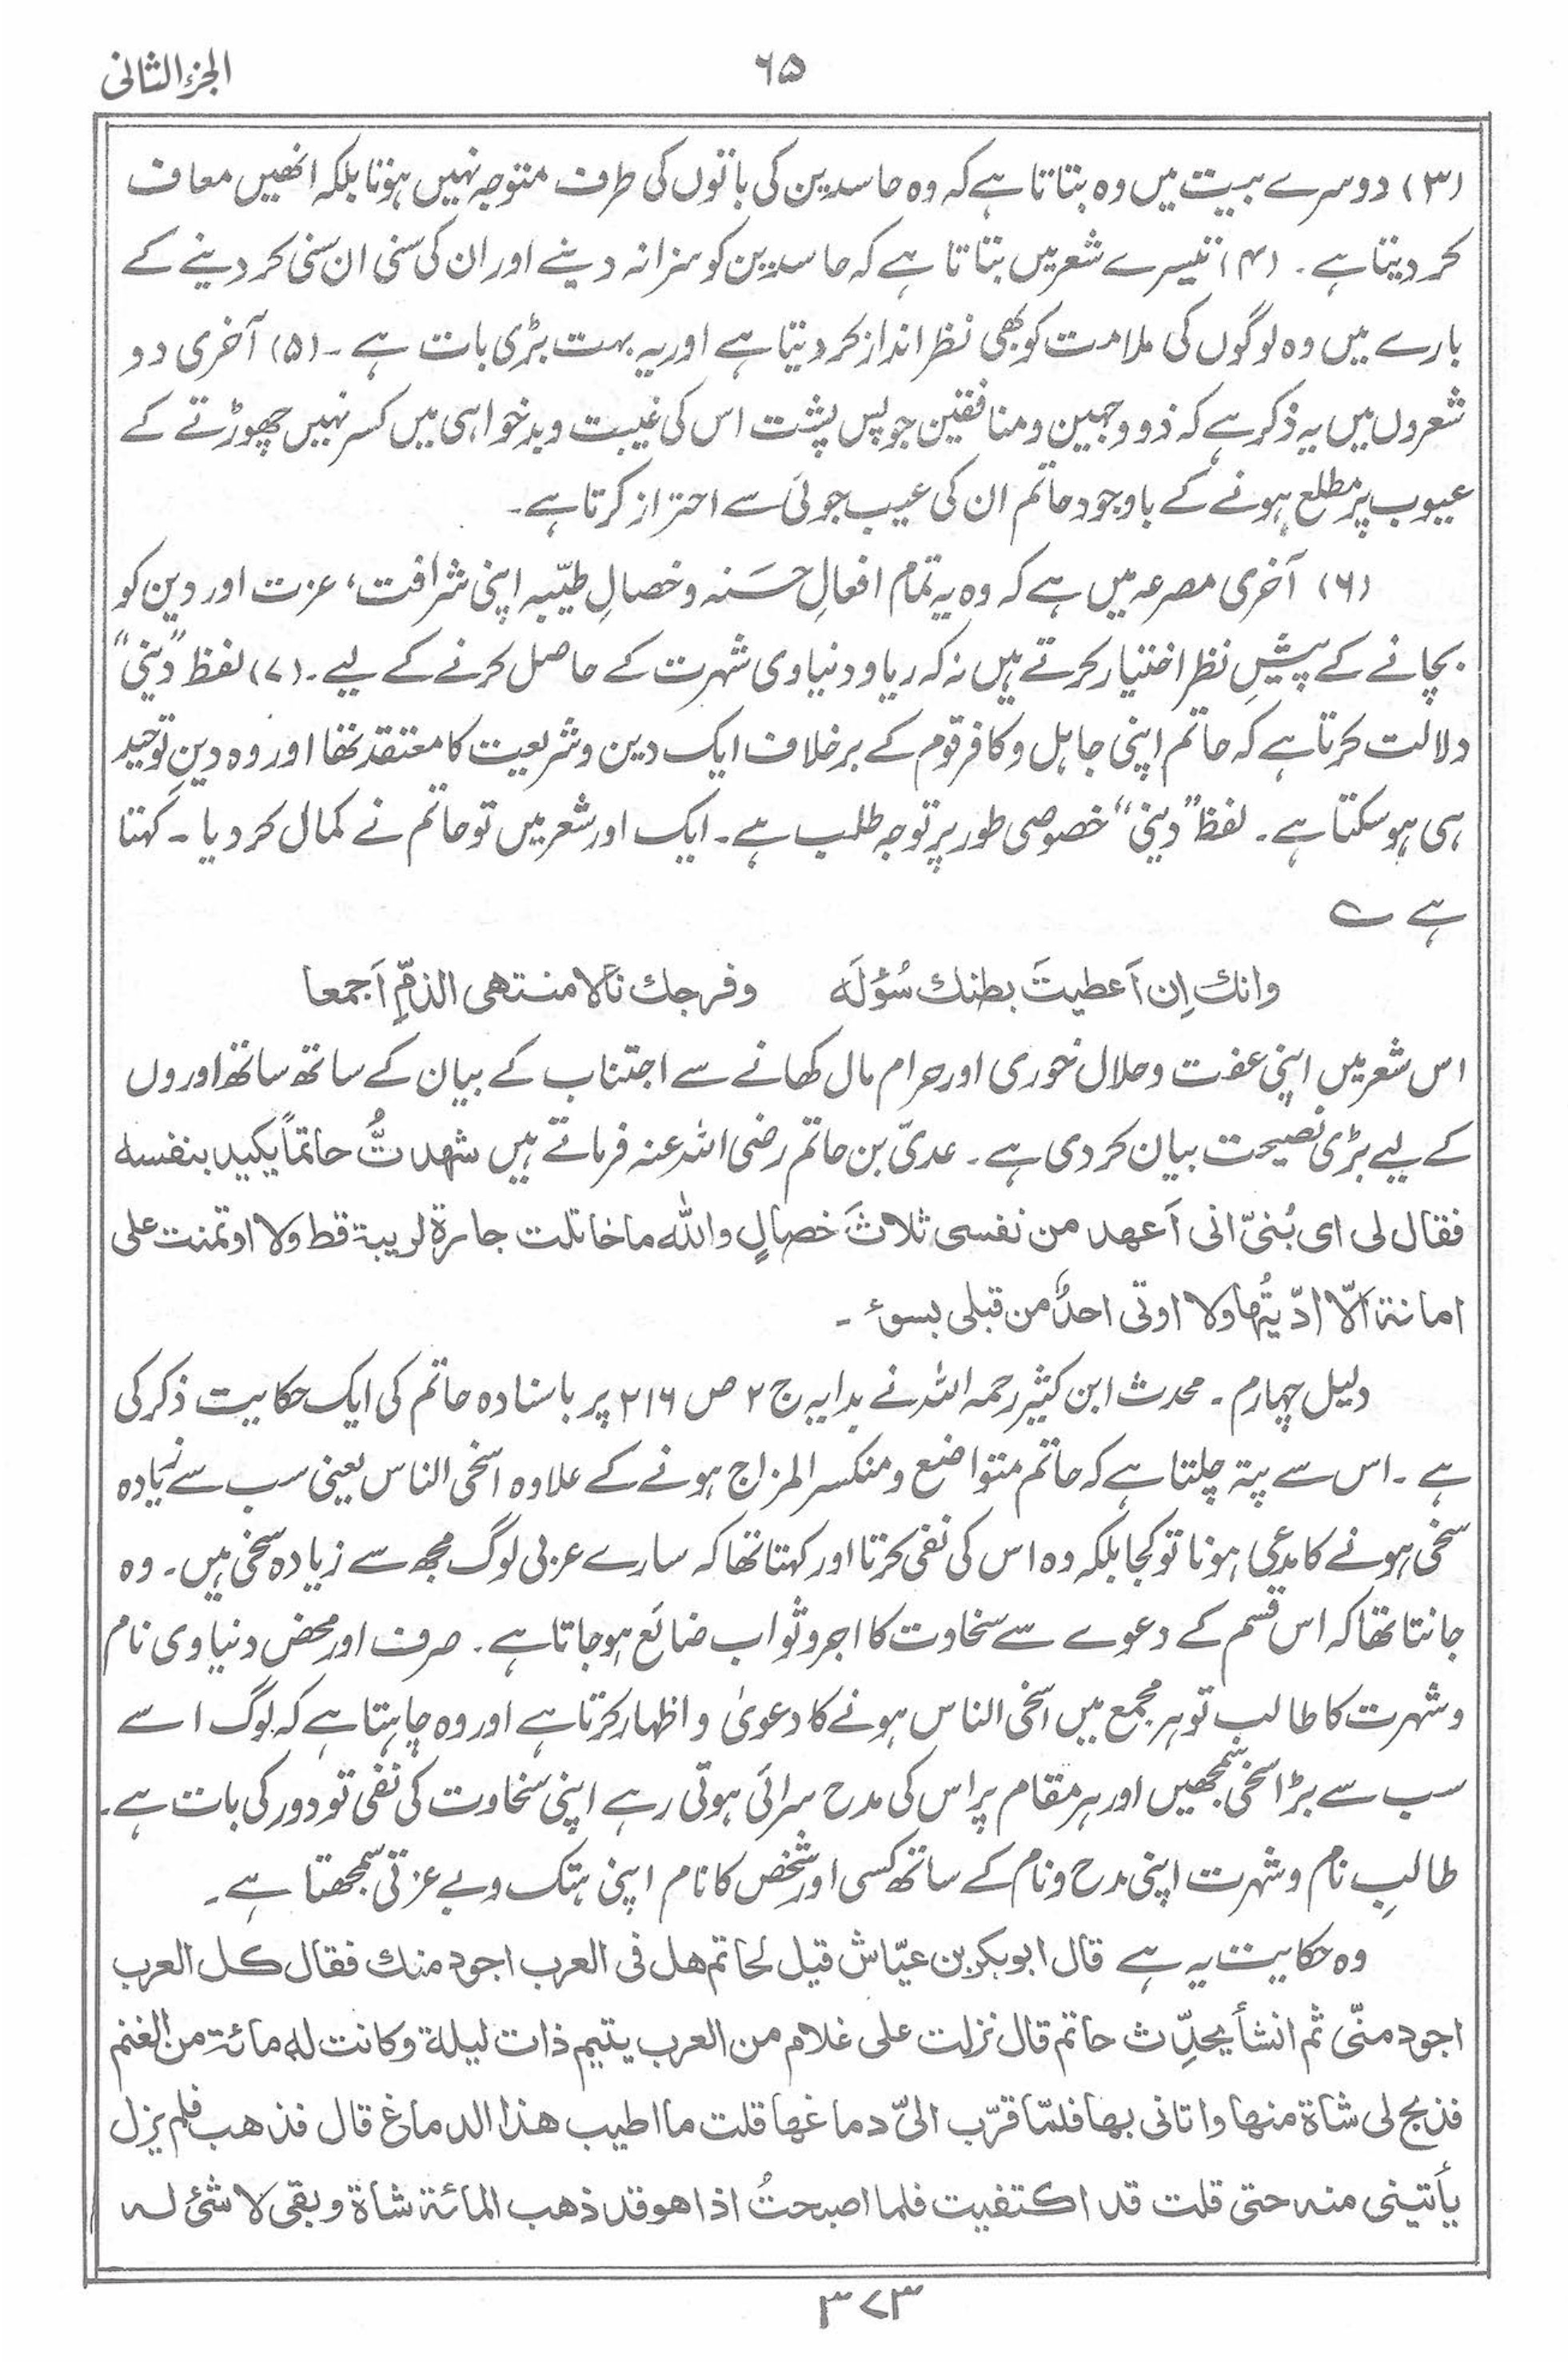 الجزء الثانی
۶۵
(۳) دوسرے بیت میں وہ بتاتا ہے کہ وہ حاسدین کی باتوں کی طرف متوجہ نہیں ہوتا بلکہ انھیں معاف
کر دیتا ہے ۔ (۴) تیسرے شعر میں بتاتا ہے کہ حاسدین کو سزا نہ دینے اور ان کی سنی ان سنی کر دینے کے
بارے میں وہ لوگوں کی ملامت کو بھی نظر انداز کر دیتا ہے اور یہ بہت بڑی بات ہے ۔ (۵) آخری دو
شعروں میں یہ ذکر ہے کہ ذو وجہین و منافقین جو پس پشت اس کی غیبت و بدخواہی میں کسر نہیں چھوڑتے کے
عیوب پر مطلع ہونے کے باوجود حاتم ان کی عیب جوئی سے احتراز کرتا ہے ۔
(۶) آخری مصرعہ میں ہے کہ وہ یہ تمام افعالِ حَسَنہ و خصالِ طیّبہ اپنی شرافت، عزت اور دین کو
بچانے کے پیشِ نظر اختیار کرتے ہیں نہ کہ ریا و دنیاوی شہرت کے حاصل کرنے کے لیے ۔ (۷) لفظ ”دینی“
دلالت کرتا ہے کہ حاتم اپنی جاہل و کافر قوم کے برخلاف ایک دین و شریعت کا معتقد تھا اور وہ دینِ توحید
ہی ہو سکتا ہے ۔ لفظ ”دینی“ خصوصی طور پر توجہ طلب ہے ۔ ایک اور شعر میں تو حاتم نے کمال کر دیا ۔ کہتا
ہے ؎
وانك اِن اَعطیتَ بطنك سُؤلَه وفرجك نالا منتهی الذمِّ اَجمعا
اس شعر میں اپنی عفت و حلال خوری اور حرام مال کھانے سے اجتناب کے بیان کے ساتھ ساتھ اوروں
کے لیے بڑی نصیحت بیان کر دی ہے ۔ عدیّ بن حاتم رضی اللہ عنہ فرماتے ہیں شهدتُ حاتماً یکید بنفسه
فقال لی ای بُنیّ انی اَعهد من نفسی ثلاثَ خصالٍ والله ما خاتلت جارة لریبة قط ولا اوتمنت علی
امانة الّا ادّیتُها ولا اوتی احدٌ من قبلی بسوء ۔
دلیل چہارم ۔ محدث ابن کثیر رحمہ اللہ نے بدایہ ج ۲ ص ۲۱۶ پر باسنادہ حاتم کی ایک حکایت ذکر کی
ہے ۔ اس سے پتہ چلتا ہے کہ حاتم متواضع و منکسر المزاج ہونے کے علاوہ اسخی الناس یعنی سب سے زیادہ
سخی ہونے کا مدعی ہونا تو کجا بلکہ وہ اس کی نفی کرتا اور کہتا تھا کہ سارے عربی لوگ مجھ سے زیادہ سخی ہیں ۔ وہ
جانتا تھا کہ اس قسم کے دعوے سے سخاوت کا اجر و ثواب ضائع ہو جاتا ہے ۔ صرف اور محض دنیاوی نام
و شہرت کا طالب تو ہر مجمع میں اسخی الناس ہونے کا دعویٰ و اظہار کرتا ہے اور وہ چاہتا ہے کہ لوگ اسے
سب سے بڑا سخی سمجھیں اور ہر مقام پر اس کی مدح سرائی ہوتی رہے اپنی سخاوت کی نفی تو دور کی بات ہے ۔
طالبِ نام و شہرت اپنی مدح و نام کے ساتھ کسی اور شخص کا نام اپنی ہتک و بے عزتی سمجھتا ہے ۔
وہ حکایت یہ ہے قال ابو بکر بن عیّاش قیل لحاتم هل فی العرب اجود منك فقال کل العرب
اجود منّی ثم انشأ یحدِّث حاتم قال نزلت علی غلام من العرب یتیم ذات لیلة وکانت له مائة من الغنم
فذبح لی شاة منها واتانی بها فلمّا قرّب الیّ دماغها قلت ما اطیب هذا الدماغ قال فذهب فلم یزل
یأتینی منه حتی قلت قد اکتفیت فلما اصبحتُ اذا هو قد ذهب المائة شاة وبقی لا شئ له
۳۷۳